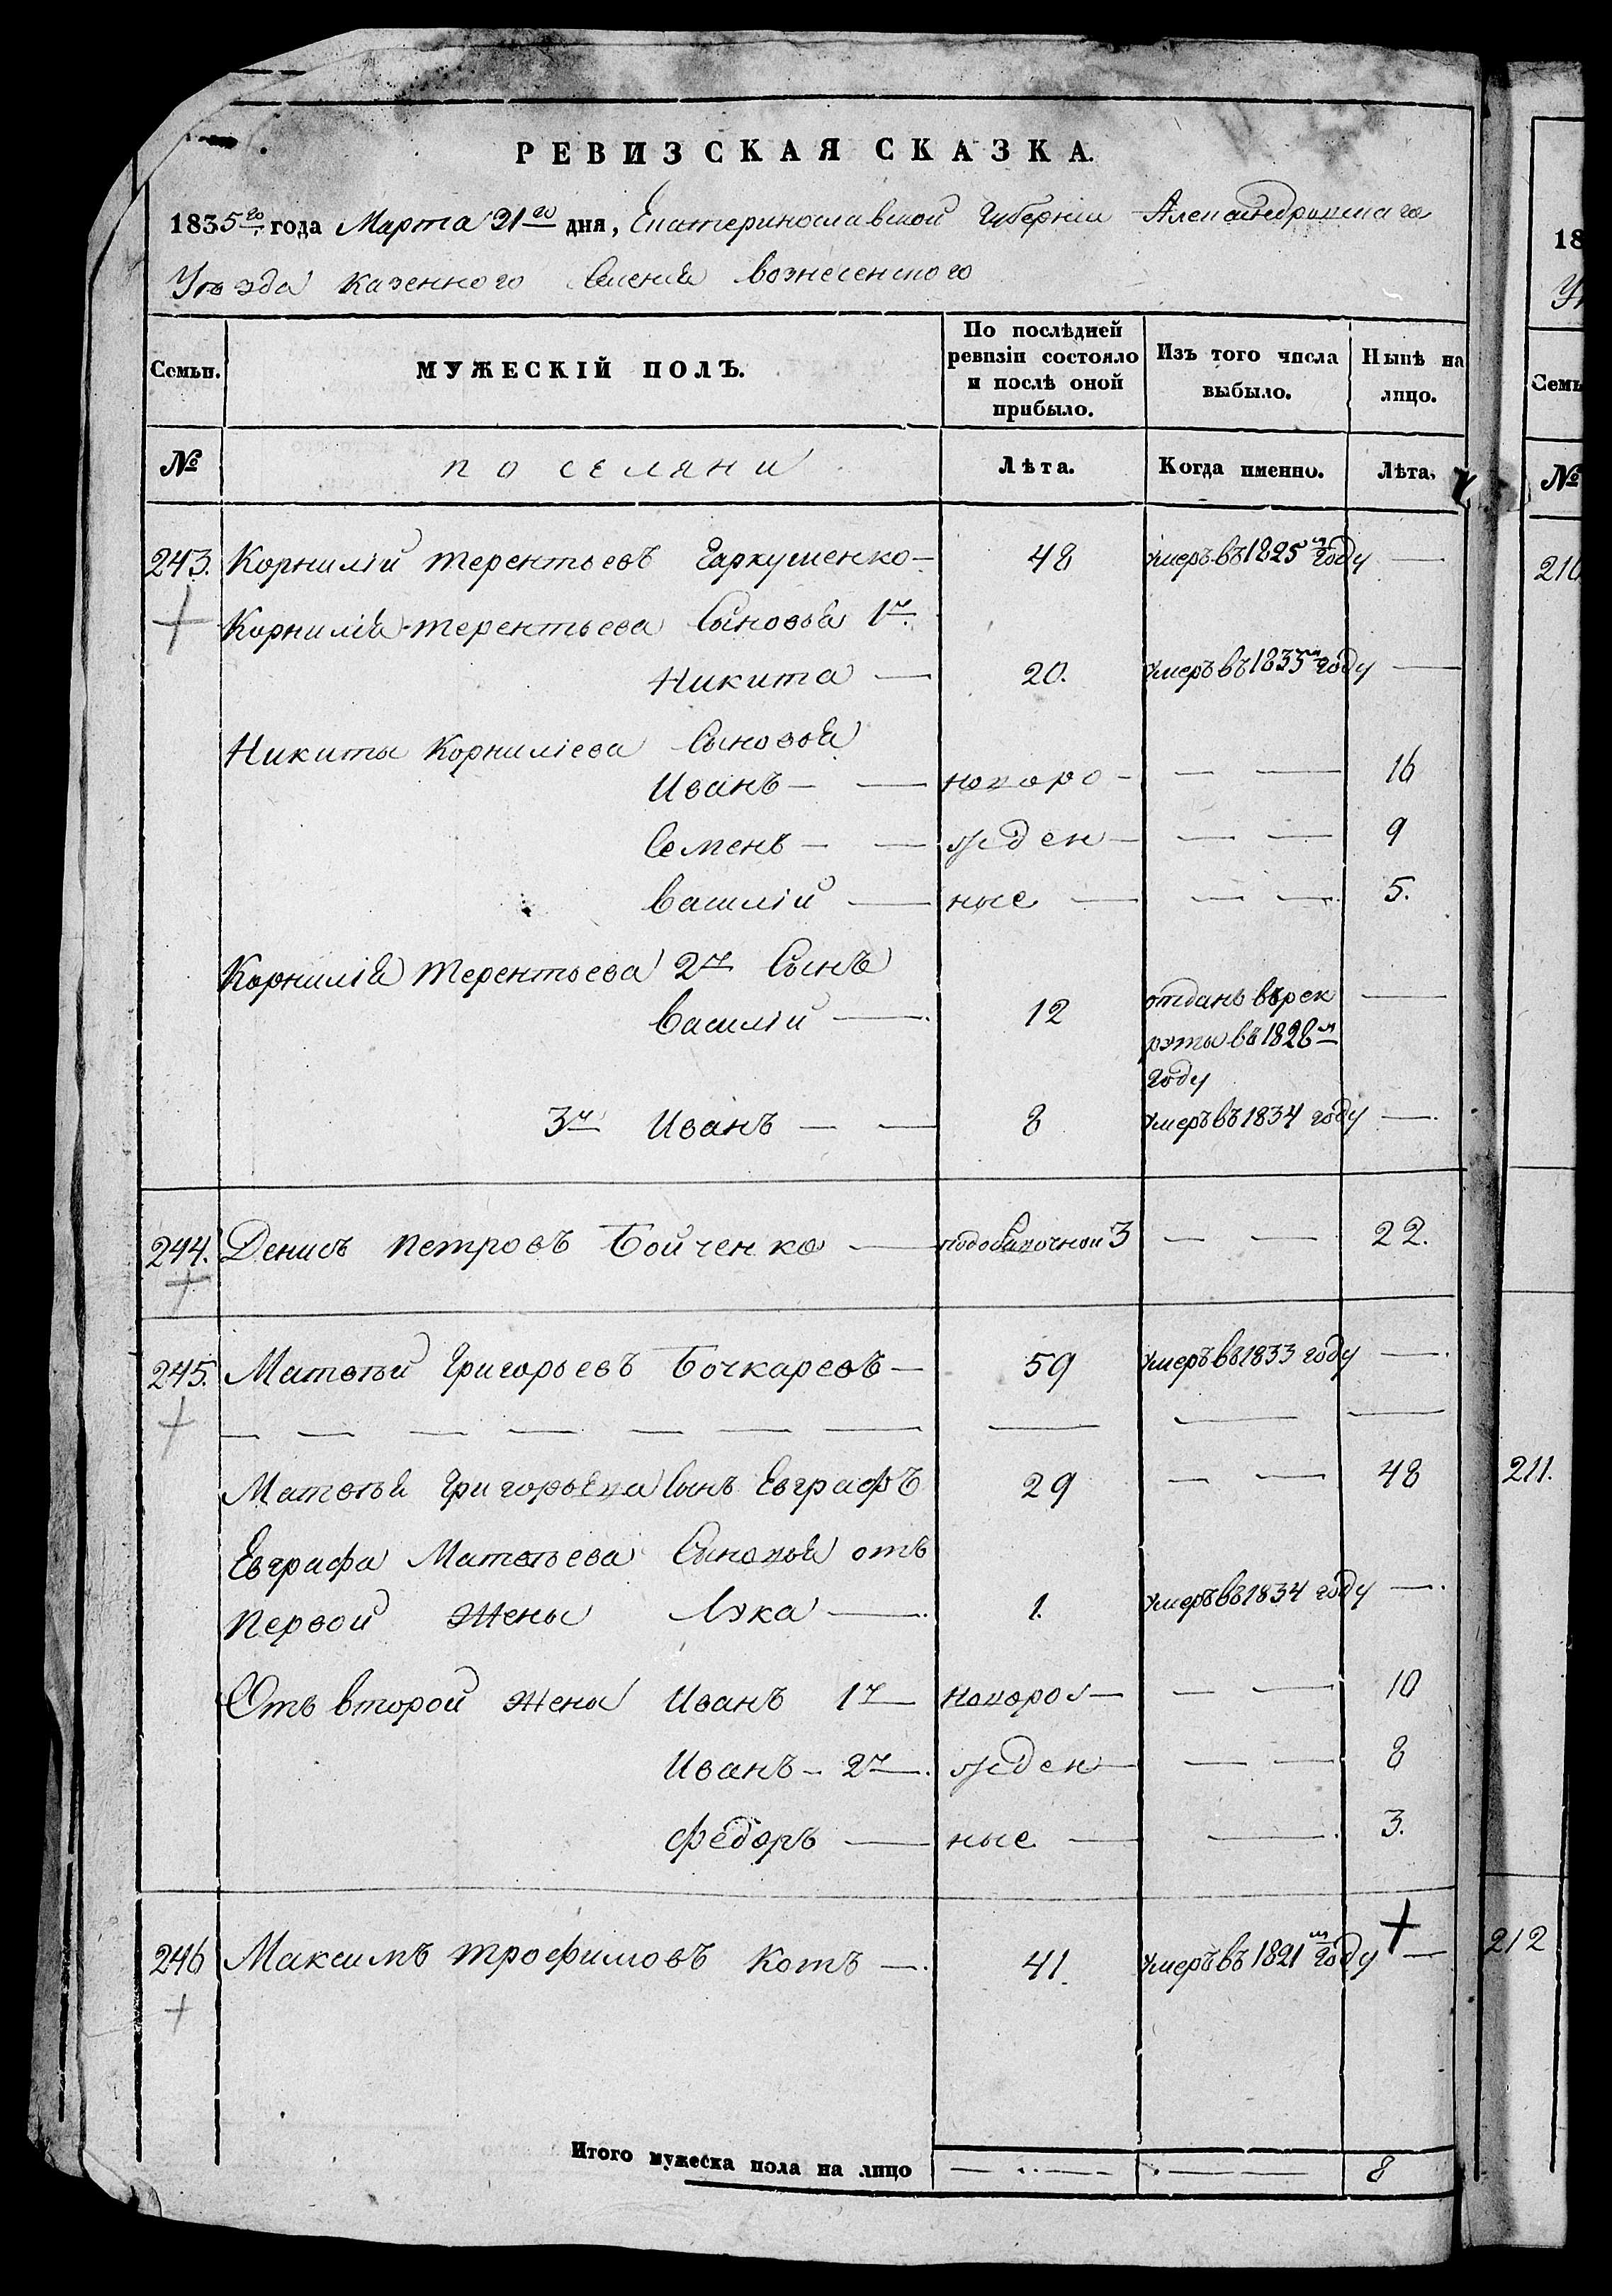 РЕВИЗСКАЯ СКАЗКА.
1835го года Марта 21го дня, Екатеринославской Губерніи Александровскаго
Уѣзда казенного Селенія вознесенского
Семьи. МУЖЕСКІЙ ПОЛЪ. По послѣдней ревизіи состояло и послѣ оной прибыло. Изъ того числа выбыло. Нынѣ на лицо.
№ поселяни Лѣта. Когда именно. Лѣта.
243. Корнилій терентьевъ Гаркушенко — 48 умеръ въ 1825м году —
Корнилія терентьева Сыновья 1й
Никита — 20. умеръ въ 1835м году —
Никиты Корниліева Сыновья
Иванъ — — новоро — — — 16
Семенъ — — жден — — — 9
василій — ные — — — 5.
Корнилія терентьева 2й Сынъ
василій — 12 отданъ въ рек —
руты въ 1828м
году
3й Иванъ — — 8 умеръ въ 1834 году —
244. Денисъ петровъ Бойченко — 3 — — 22.
245. Матвѣй Григорьевъ Бочкаревъ — 59 умеръ въ 1833 году —
Матвѣя Григорьева Сынъ Евграфъ 29 — — 48
Евграфа Матвѣева Сыновья отъ
первой Жены Лука — 1. умеръ въ 1834 году —
Отъ второй жены Иванъ 1й — новорож — — — 10
Иванъ — 2й — жден — — — 8
федоръ — ные — — 3.
246 Максимъ трофимовъ Котъ — 41. умеръ въ 1821м году —
Итого мужеска пола на лицо — — — — 8
18
Семь
№
210
211.
212